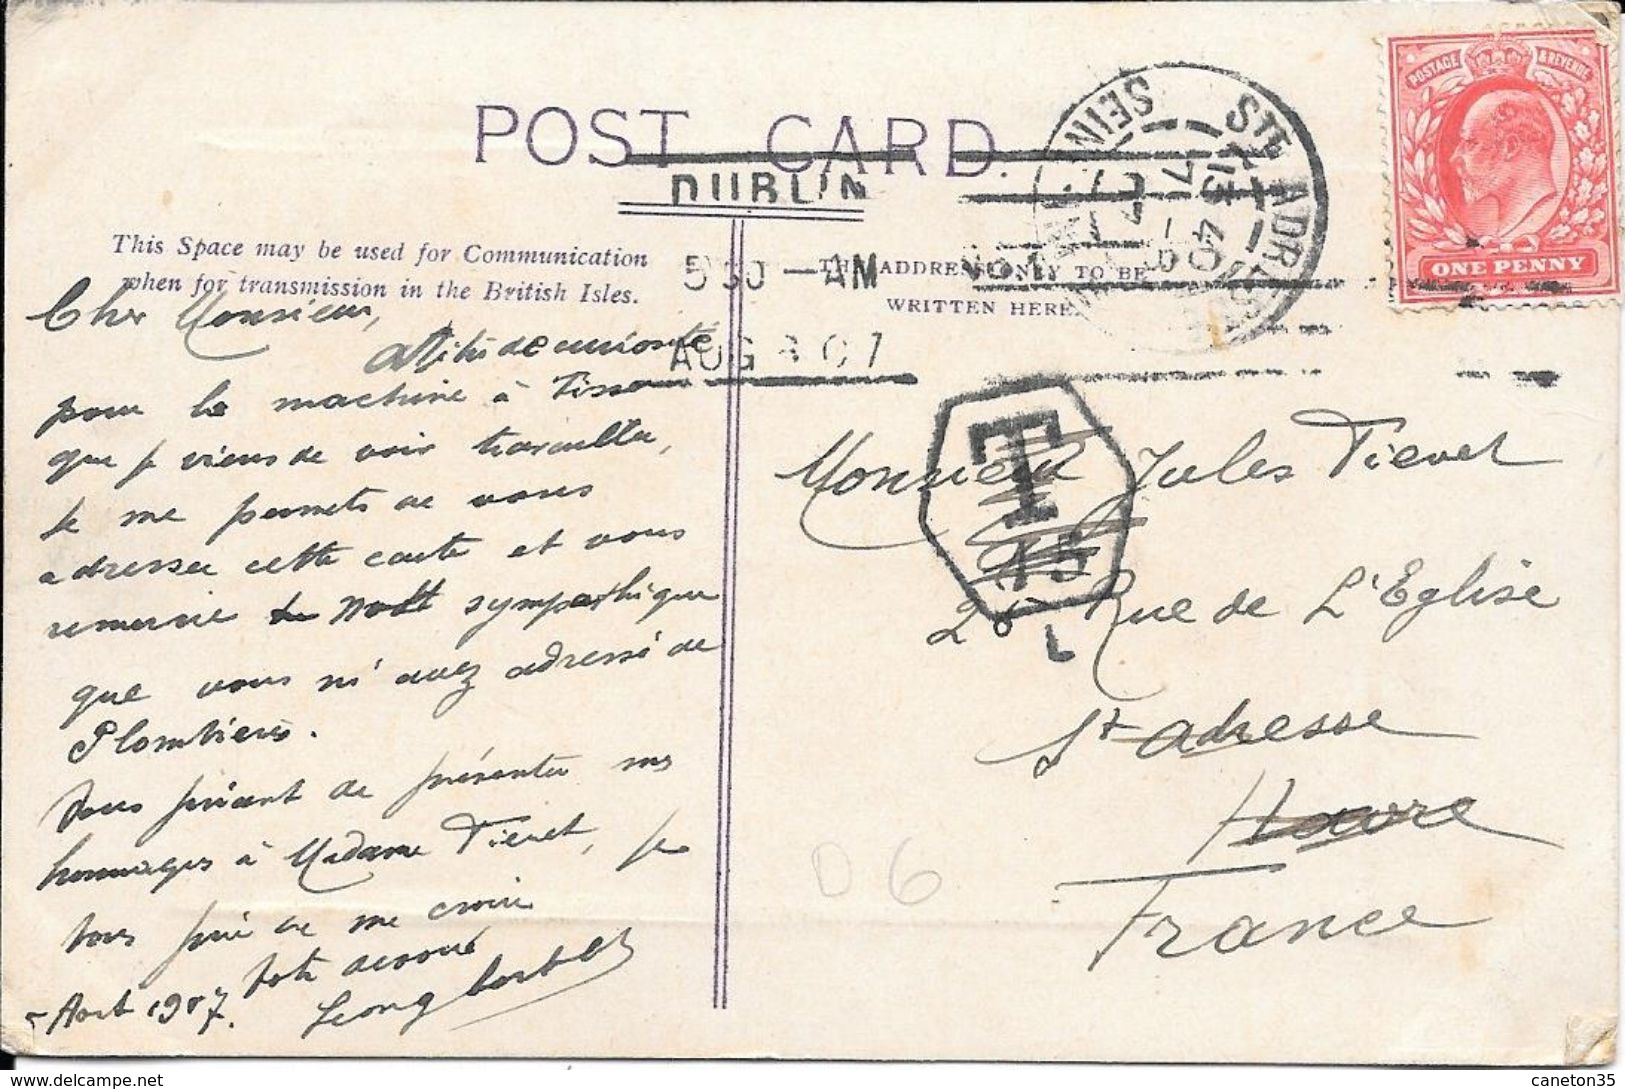 POST CARD.
POSTAGE & REVENUE
ONE PENNY
STE ADRESSE
SEINE
13 40
DUBLIN
5 30 - AM
AUG 07
This Space may be used for Communication
when for transmission in the British Isles.
THE ADDRESS ONLY TO BE
WRITTEN HERE.
Cher Monsieur,
A titre de curiosité
pour la machine à tisser
que je viens de voir travailler,
je me permets de vous
adresser cette carte et vous
remercie du mot sympathique
que vous m'avez adressé de
Plombières.
Vous priant de présenter mes
hommages à Madame Tievet, je
vous prie de me croire
votre dévoué
5 Aout 1907.
T
15
L
Monsieur Jules Tievet
26 Rue de L'Eglise
St adresse
Havre
France
D6
www.delcampe.net
caneton35